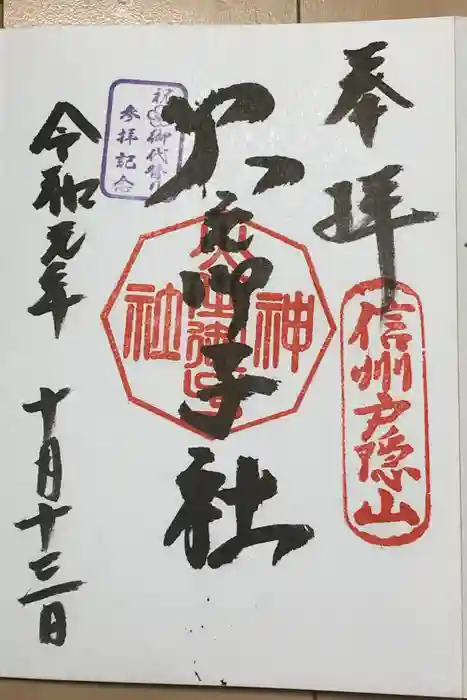 奉拝
信州戸隠山
火之御子社
祝 御代替り
参拝記念
神
社
令和元年 十月十三日